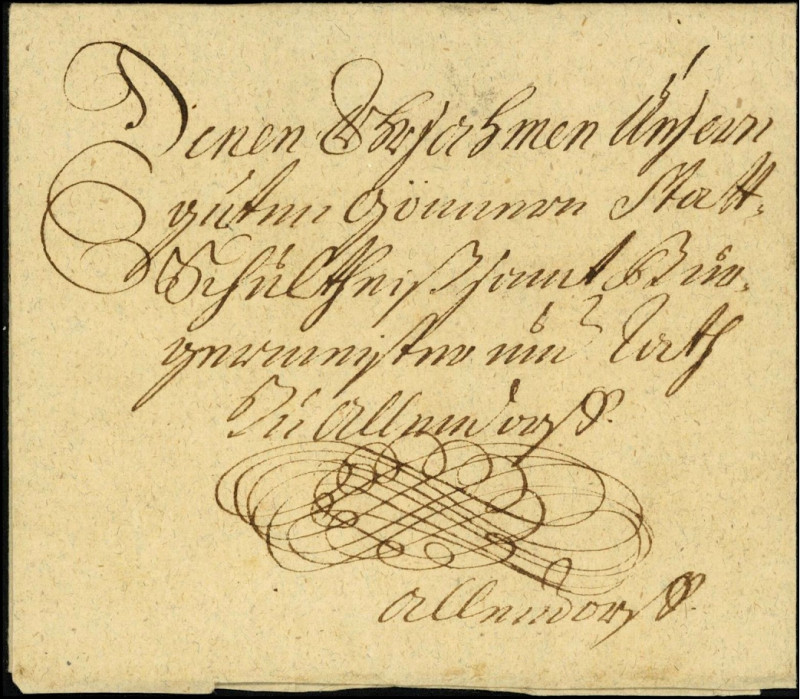 Denen Ehrsahmen Unsern
guten Gönnern Statt-
Schultheiß samt Bür-
germeister und Rath
Zu Allendorff.
Allendorff.